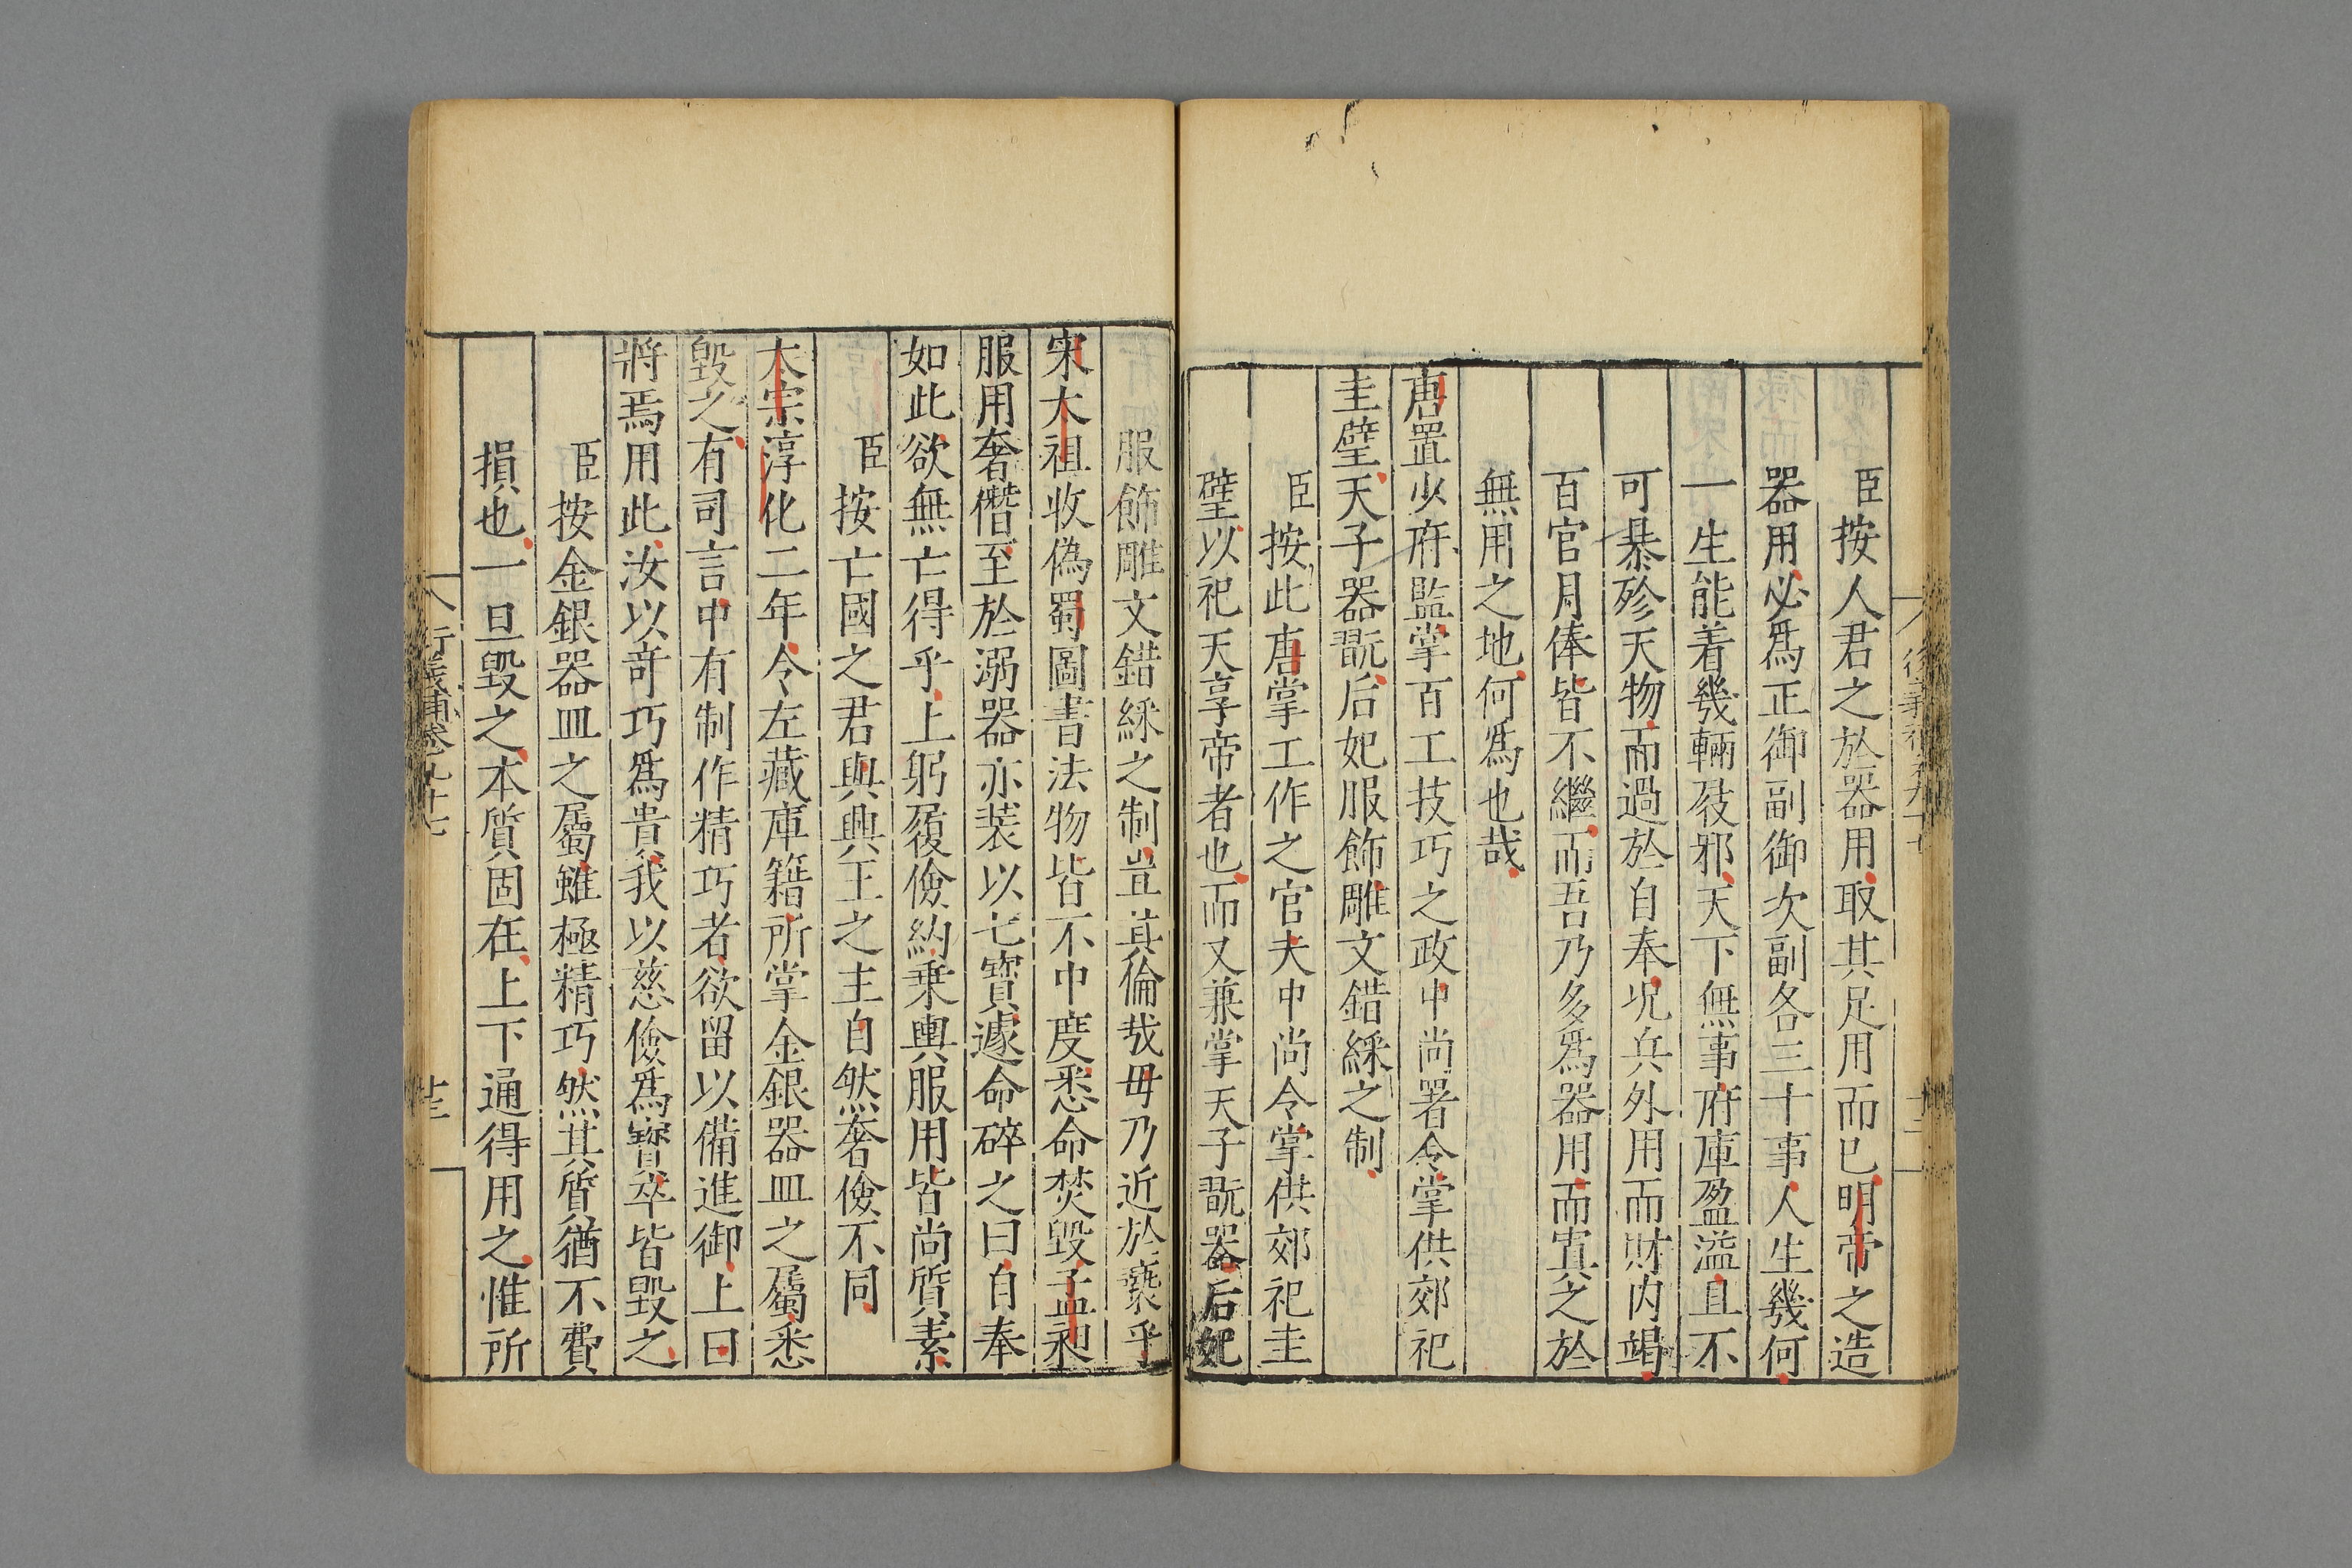 臣按人君之於器用取其足用而已明帝之造
器用必爲正御副御次副各三十事人生幾何
一生能着幾輛屐邪天下無事府庫盈溢且不
可暴殄天物而過於自奉况兵外用而財内竭
百官月俸皆不繼而吾乃多爲器用而寘之於
無用之地何爲也哉
唐置少府監掌百工技巧之政中尚署令掌供郊祀
圭璧天子器翫后妃服飾雕文錯綵之制
臣按此唐掌工作之官夫中尚令掌供郊祀圭
璧以祀天享帝者也而又兼掌天子翫器后妃
服飾雕文錯綵之制豈眞倫哉毋乃近於䙝乎
宋太祖收偽蜀圖書法物皆不中度悉命焚毀孟昶
服用奢僭至於溺器亦裝以七寳遽命碎之曰自奉
如此欲無亡得乎上躬履儉約乗輿服用皆尚質素
臣按亡國之君與興王之主自然奢儉不同
太宗淳化二年令左藏庫籍所掌金銀器皿之屬悉
毀之有司言中有制作精巧者欲留以備進御上曰
將焉用此汝以竒巧爲貴我以慈儉爲寳卒皆毀之
臣按金銀器皿之屬雖極精巧然其質猶不費
損也一旦毀之本質固在上下通得用之惟所
衍義補卷九十七
廿三